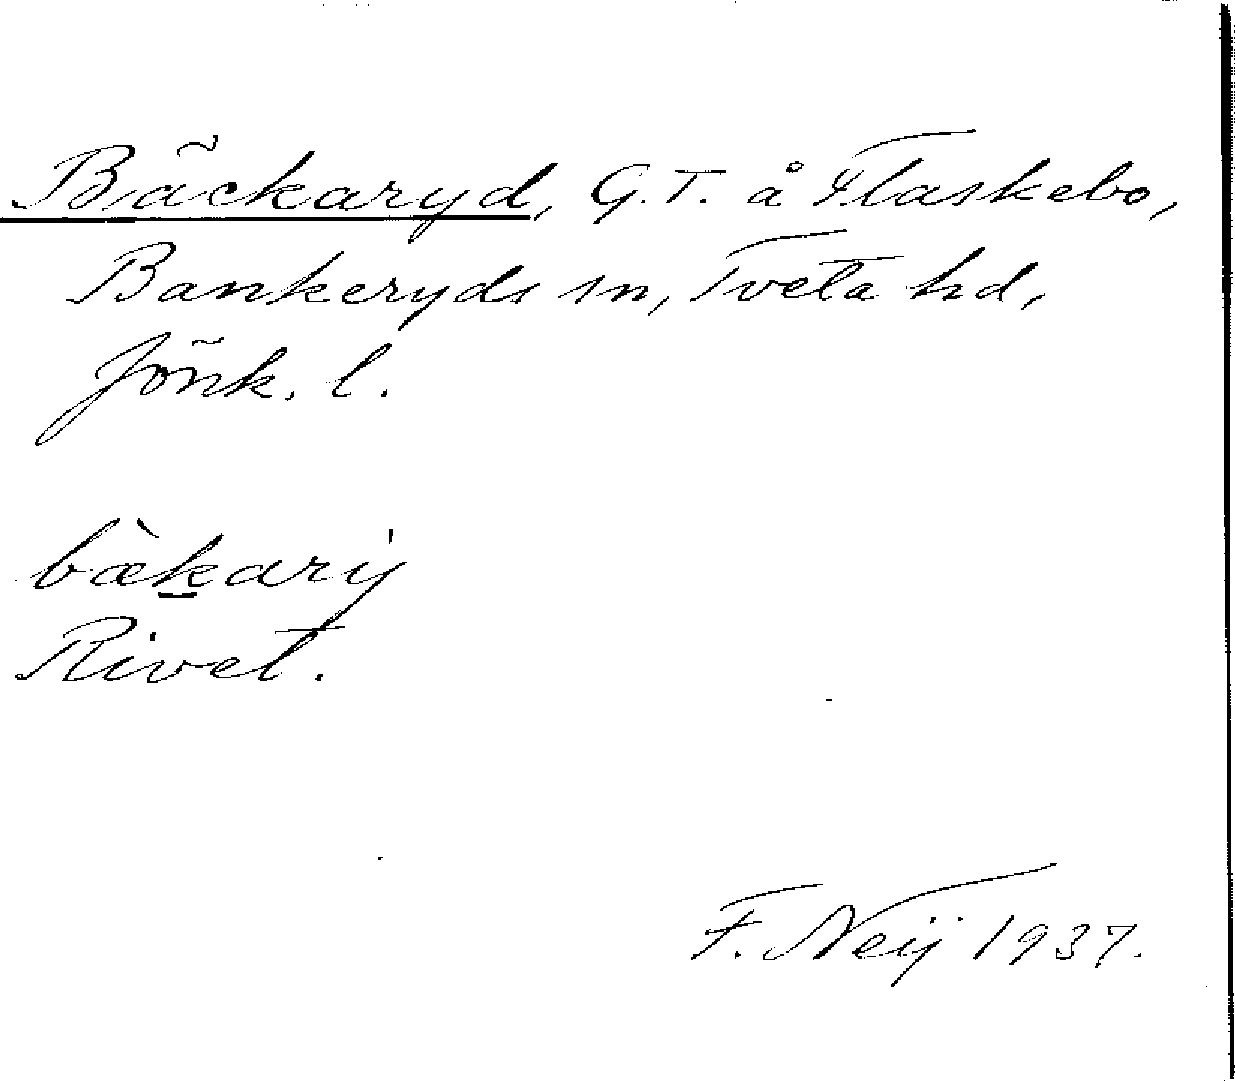 Bäckaryd, G.T. å Flaskebo,
Bankeryds sn, Tveta hd,
Jönk. l.
bæ̀kary
Rivet.
F. Neij 1937.